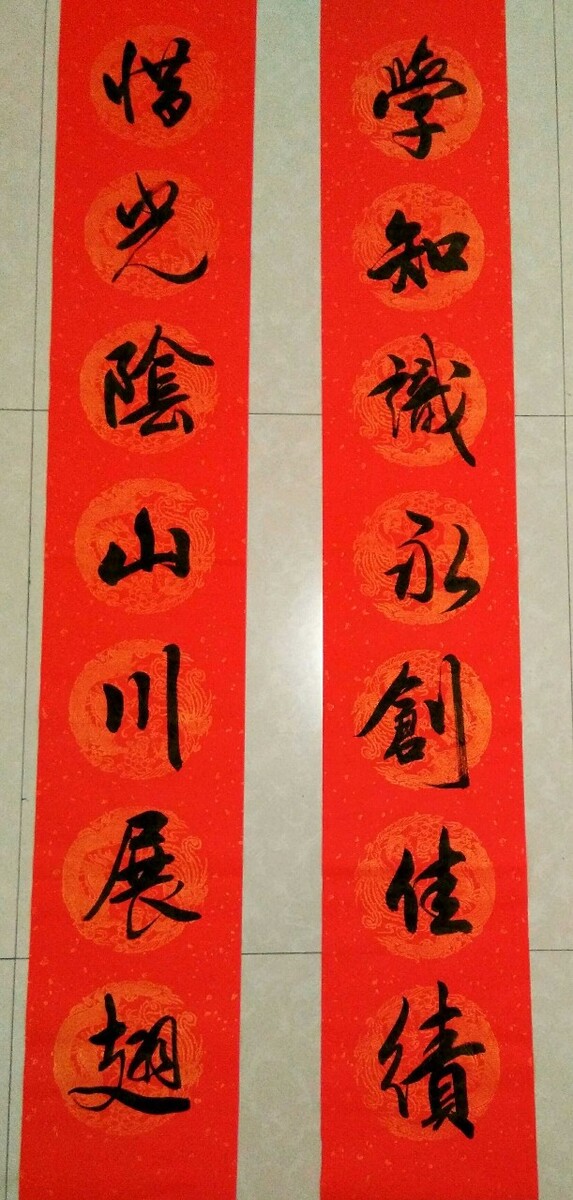 學知識永創佳績
惜光陰山川展翅